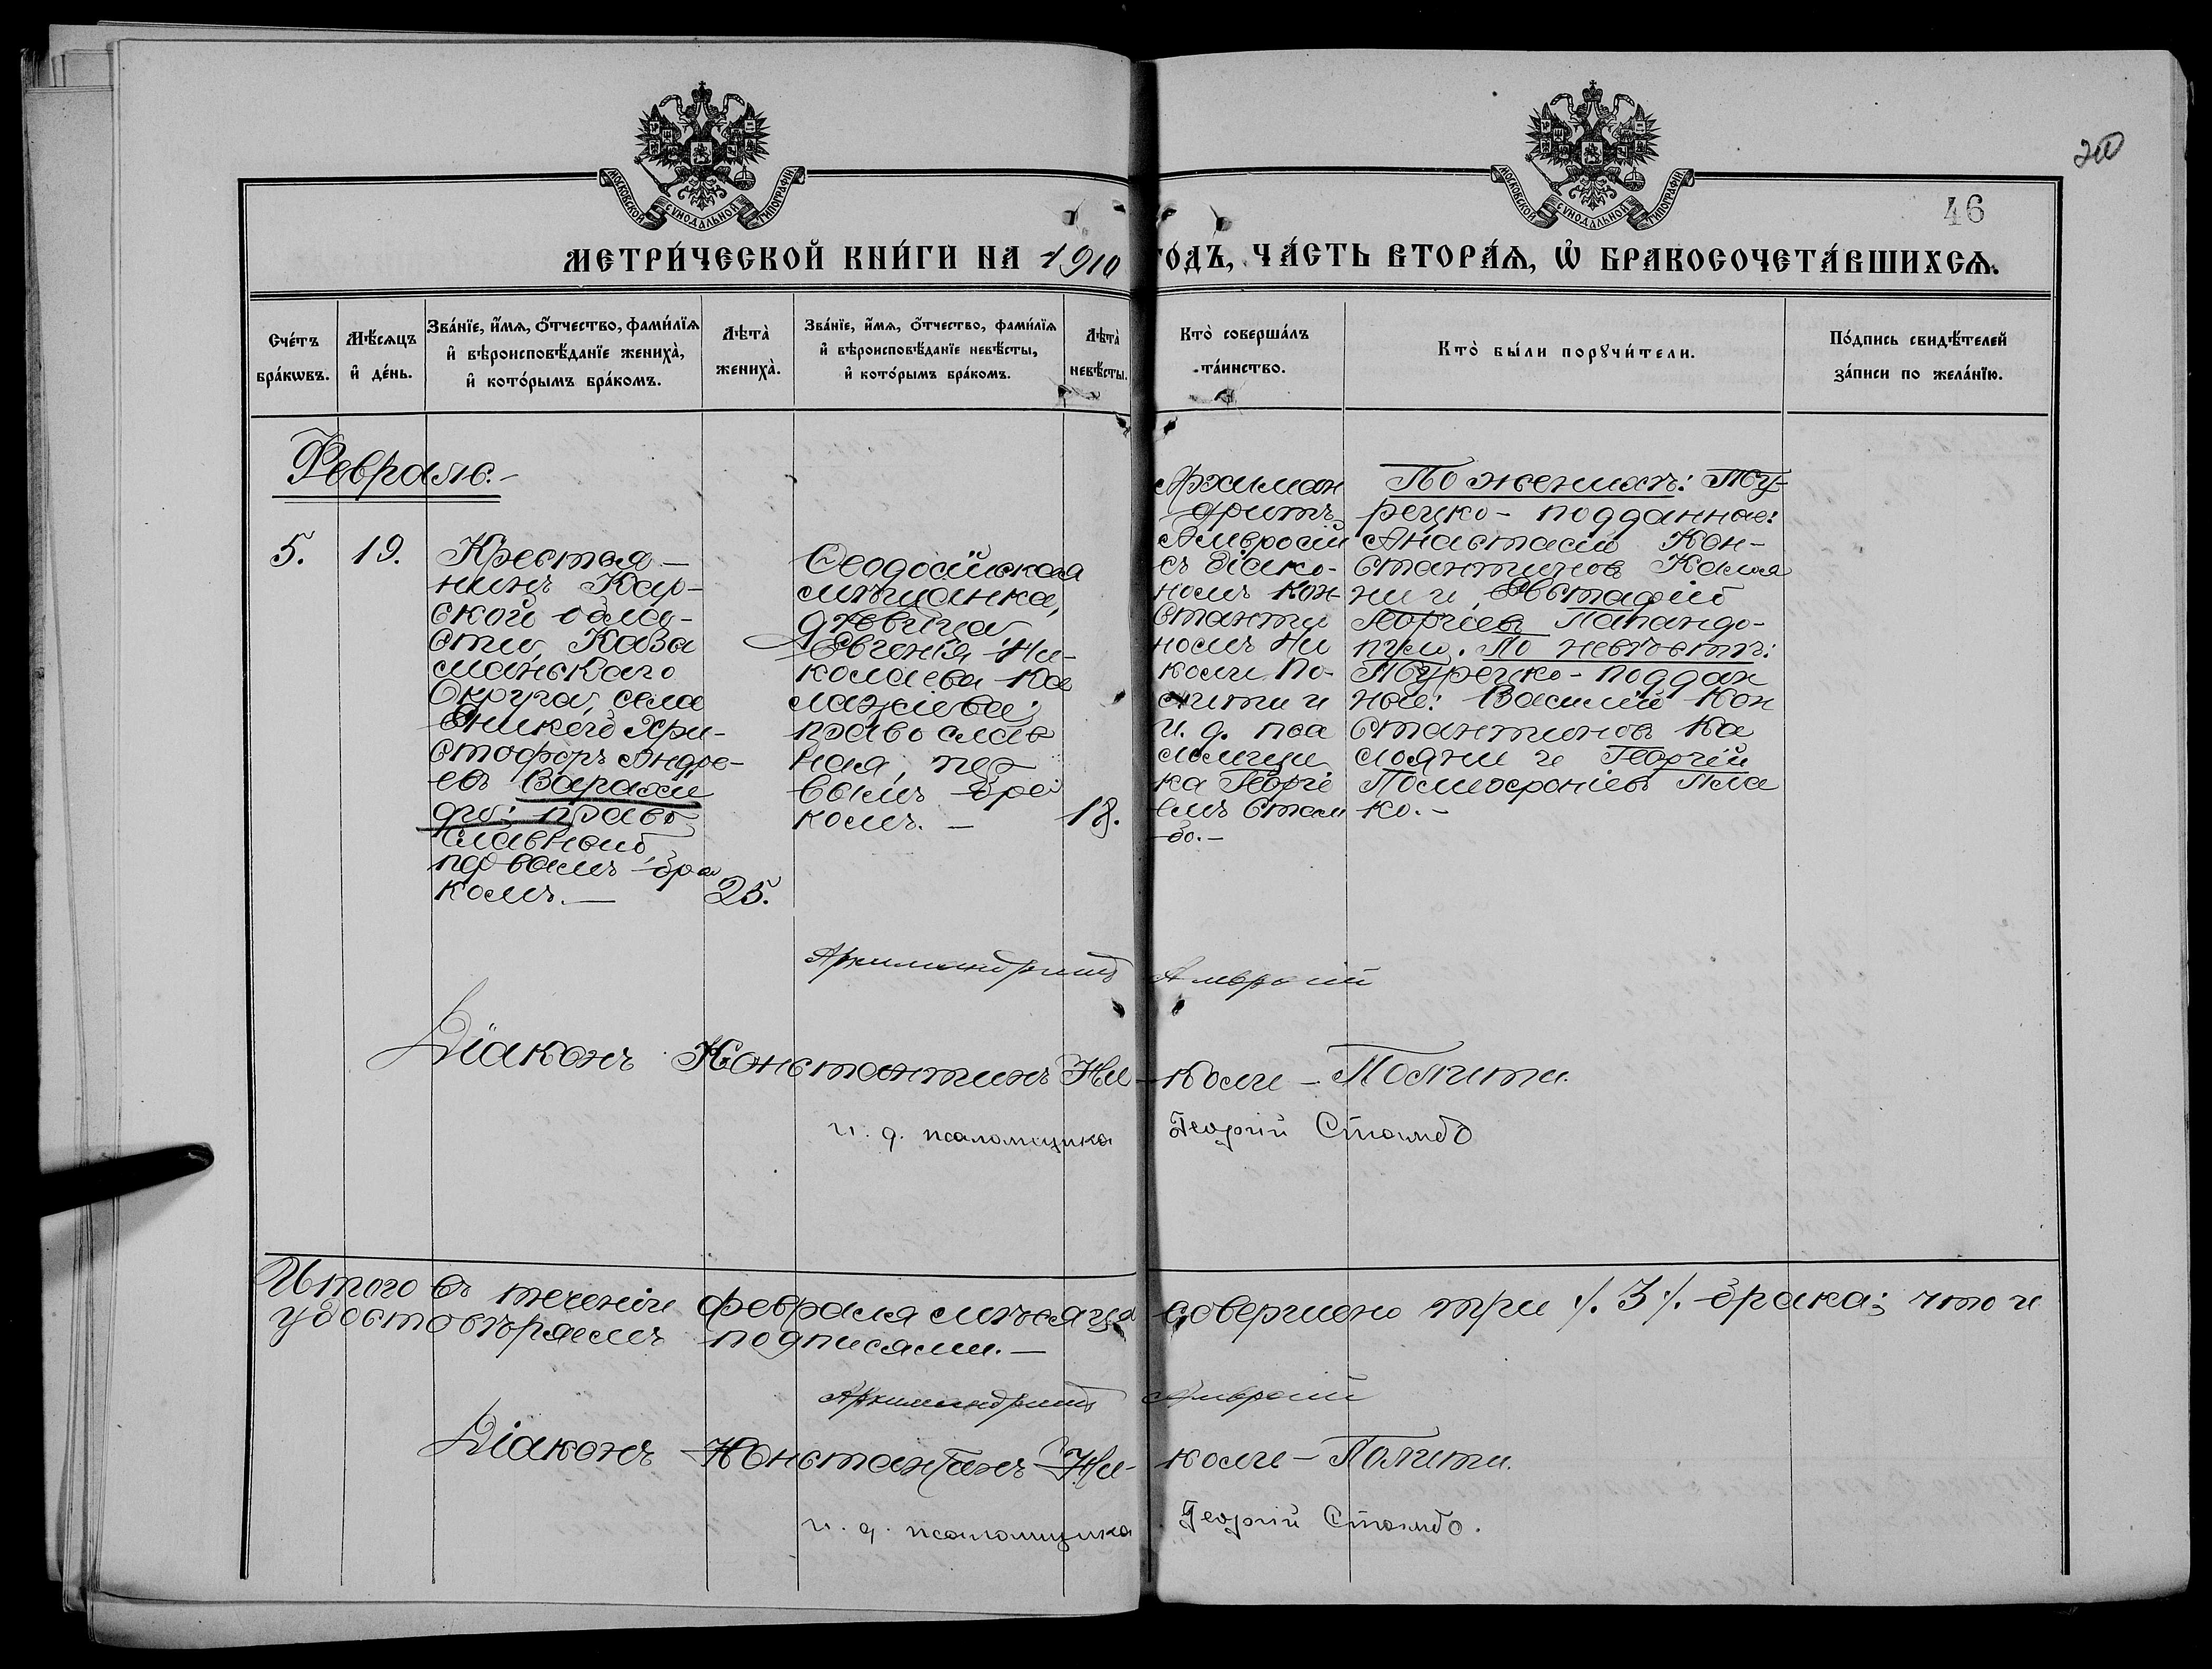 20
46
МОСКОВСКОЙ СѴНОДАЛЬНОЙ ТИПОГРАФІИ
МОСКОВСКОЙ СѴНОДАЛЬНОЙ ТИПОГРАФІИ
МЕТРИ́ЧЕСКОЙ КНИ́ГИ НА 1910 ГО́ДЪ, ЧА́СТЬ ВТОРА́Ѧ, Ѽ БРАКОСОЧЕТА́ВШИХСѦ.
Сче́тъ
бра́кѡвъ.
Мѣ́сѧцъ
и҆ де́нь.
Зва́нїе, и҆́мѧ, ѻ҆́тчество, фами́лїѧ
и҆ вѣроисповѣ́данїе жениха̀,
и҆ кото́рымъ бра́комъ.
Лѣта̀
жениха̀.
Зва́нїе, и҆́мѧ, ѻ҆́тчество, фами́лїѧ
и҆ вѣроисповѣ́данїе невѣ́сты,
и҆ кото́рымъ бра́комъ.
Лѣта̀
невѣ́сты.
Кто̀ соверша́лъ
та́инство.
Кто̀ бы́ли порꙋчи́тели.
По́дпись свидѣ́телей
за́писи по жела́нїю.
Февраль.-
5.
19.
Крестья-
нинъ Кар-
ской обла-
сти, Кагыз
манскаго
Округа, села
Еникей Хри-
стофоръ Андре-
евъ
право
славный,
первымъ бра
комъ. —
25.
Ѳеодосійская
мѣщанка,
дѣвица
Евгенія Ни-
колаева Ка
ланжіева;
православ
ная, пер
вымъ бра
комъ. —
18.
Архиман
дритъ
Амвросій
съ діако-
номъ Кон-
станти
номъ Ни
коли По-
лити и
и. д. пса
ломщи
ка Георгі
емъ Стам
бо.-
По женихѣ: Ту-
рецко - подданные:
Анастасій Кон-
стантиновъ Калоя
ни и Евстафій
Георгіевъ Папандо-
пуло. По невѣстѣ:
Турецко - поддан
ные: Василій Кон
стантиновъ Ка
лояни и Георгій
Полихроніевъ Пла
ко.-
Архимандритъ Амвросій
Діаконъ Константинъ Ни-коли - Полити.
и. д. псаломщика Георгій Стамбо
Итого въ теченіи февраля мѣсяца совершено три /. 3 /. брака; что и
удостовѣряемъ подписями.—
Архимандритъ Амвросій
Діаконъ Константинъ Ни-коли - Полити.
и. д. псаломщика Георгій Стамбо.